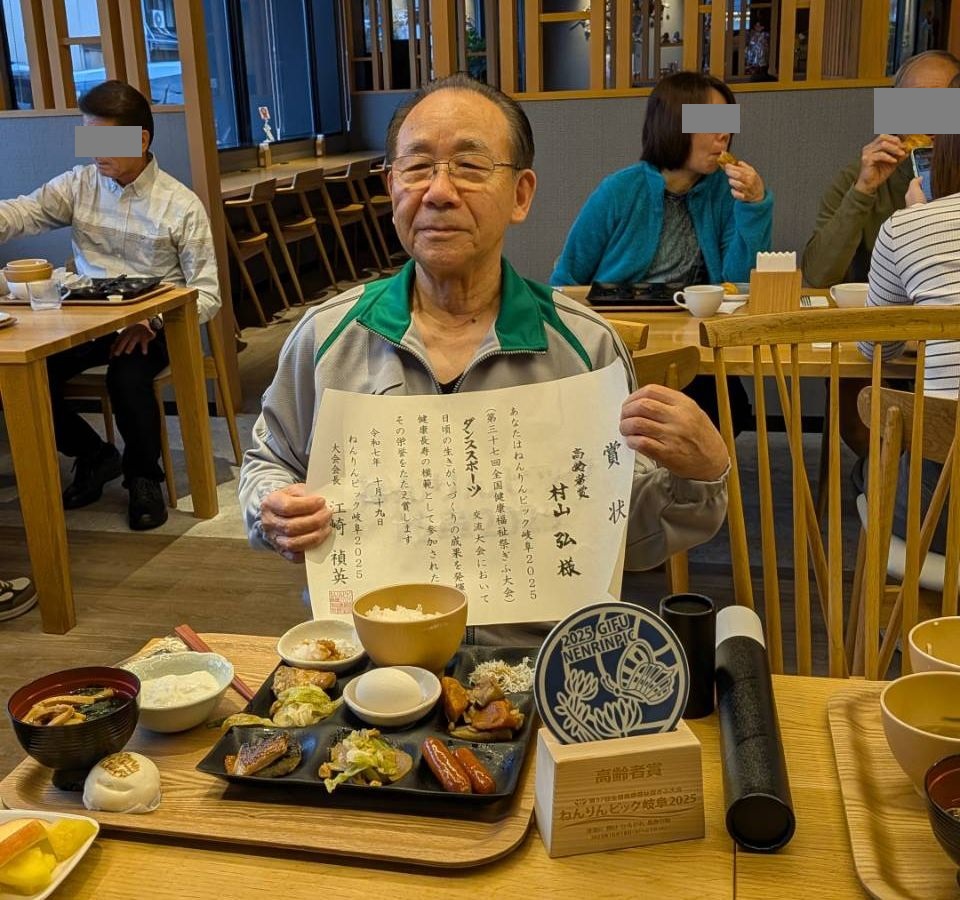 賞状
高齢者賞
村山 弘 様
あなたはねんりんピック岐阜2025
(第三十七回全国健康福祉祭ぎふ大会)
ダンススポーツ 交流大会において
日頃の生きがいづくりの成果を発揮
健康長寿の模範として参加された
その栄誉をたたえ賞します
令和七年 十月十九日
ねんりんピック岐阜2025
大会会長 江崎 禎英
2025 GIFU
NENRINPIC
高齢者賞
第37回全国健康福祉祭ぎふ大会
ねんりんピック岐阜2025